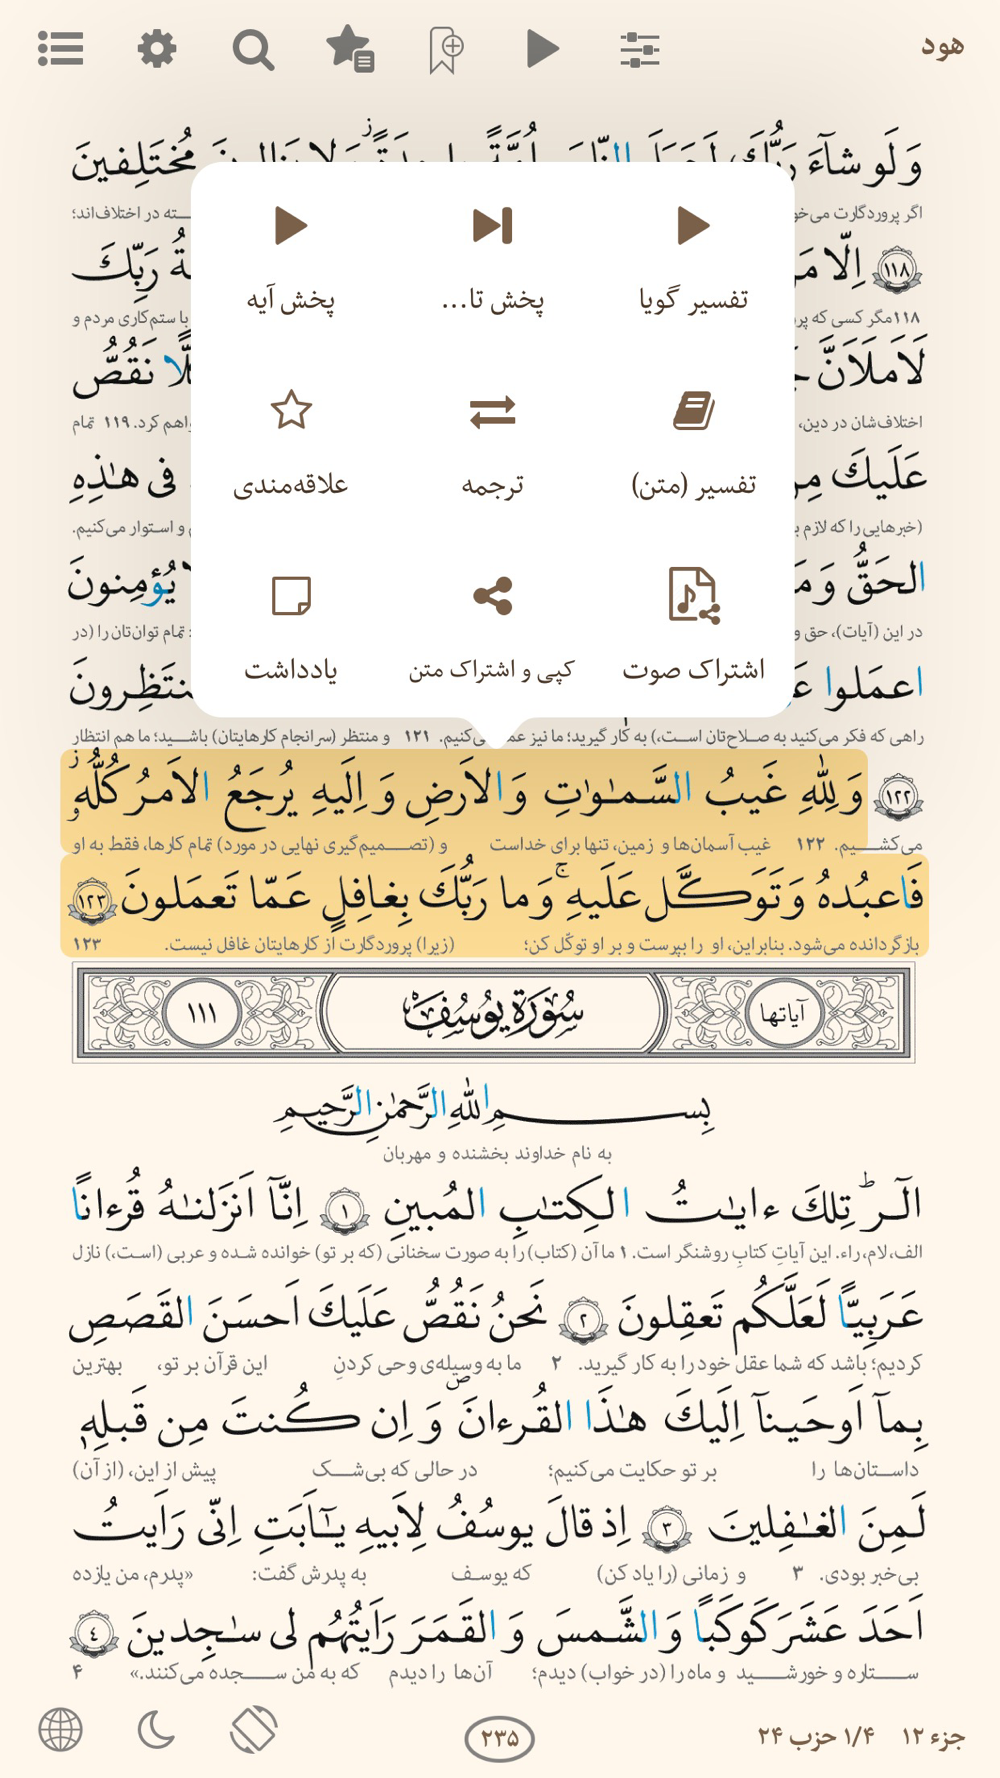 هود
وَلَو شآءَ رَبُّكَ لَجَعَلَ النّاسَ اُمَّةً مُختَلِفينَ
اگر پروردگارت می‌خو ـته در اختلاف‌اند؛
﴿۱۱۸﴾ اِلّا مَ ـةُ رَبِّكَ
۱۱۸ مگر کسی که پر با ستم‌کاری مردم و
لَاَملَاَنَّ نَقُصُّ
اختلاف‌شان در دین، ـواهم کرد. ۱۱۹ تمام
عَلَيكَ مِن فى هـٰذِهِ
(خبرهایی را که لازم و استوار می‌کنیم.
الحَقُّ وَ مَ يُؤمِنونَ
در این (آیات)، حق و تمام توان‌تان را (در
اعمَلوا ـنتَظِرونَ
راهی که فکر می‌کنید به صلاح‌تان است،) به کار گیرید؛ ما نیز عمـ ـی‌کنیم. ۱۲۱ و منتظر (سرانجام کارهایتان) باشید؛ ما هم انتظار
تفسیر گویا
پخش تا...
پخش آیه
تفسیر (متن)
ترجمه
علاقه‌مندی
اشتراک صوت
کپی و اشتراک متن
یادداشت
﴿۱۲۲﴾ وَ لِلّٰهِ غَيبُ السَّمـٰوٰتِ وَ الاَرضِ وَ اِلَيهِ يُرجَعُ الاَمرُ كُلُّهُ
می‌کشیم. ۱۲۲ غیب آسمان‌ها و زمین، تنها برای خداست و (تصمیم‌گیری نهایی در مورد) تمام کارها، فقط به او
فَاعبُدهُ وَ تَوَكَّل عَلَيهِ ۚ وَ ما رَبُّكَ بِغافِلٍ عَمّا تَعمَلونَ ﴿۱۲۳﴾
بازگردانده می‌شود. بنابراین، او را بپرست و بر او توکّل کن؛ (زیرا) پروردگارت از کارهایتان غافل نیست. ۱۲۳
آیاتها سُورَةُ يُوسُفَ ۱۱۱
بِسمِ اللهِ الرَّحمٰنِ الرَّحيمِ
به نام خداوند بخشنده و مهربان
الٓرٰ ۚ تِلكَ ءايـٰتُ الكِتـٰبِ المُبينِ ﴿۱﴾ اِنّآ اَنزَلنـٰهُ قُرءانًا
الف، لام، راء. این آیاتِ کتابِ روشنگر است. ۱ ما آن (کتاب) را به صورت سخنانی (که بر تو) خوانده شده و عربی (است،) نازل
عَرَبِيًّا لَعَلَّكُم تَعقِلونَ ﴿۲﴾ نَحنُ نَقُصُّ عَلَيكَ اَحسَنَ القَصَصِ
کردیم؛ باشد که شما عقل خود را به کار گیرید. ۲ ما به وسیله‌ی وحی کردنِ این قرآن بر تو، بهترین
بِمآ اَوحَينآ اِلَيكَ هـٰذَا القُرءانَ وَ اِن كُنتَ مِن قَبلِهِ
داستان‌ها را بر تو حکایت می‌کنیم؛ در حالی که بی‌شک پیش از این، (از آن)
لَمِنَ الغـٰفِلينَ ﴿۳﴾ اِذ قالَ يوسُفُ لِاَبيهِ يـٰٓاَبَتِ اِنّى رَاَيتُ
بی‌خبر بودی. ۳ و زمانی (را یاد کن) که یوسف به پدرش گفت: «پدرم، من یازده
اَحَدَ عَشَرَ كَوكَبًا وَ الشَّمسَ وَ القَمَرَ رَاَيتُهُم لى سـٰجِدينَ ﴿۴﴾
ستاره و خورشید و ماه را (در خواب) دیدم؛ آن‌ها را دیدم که به من سجده می‌کنند.» ۴
جزء ۱۲ ۱/۴ حزب ۲۴
۲۳۵